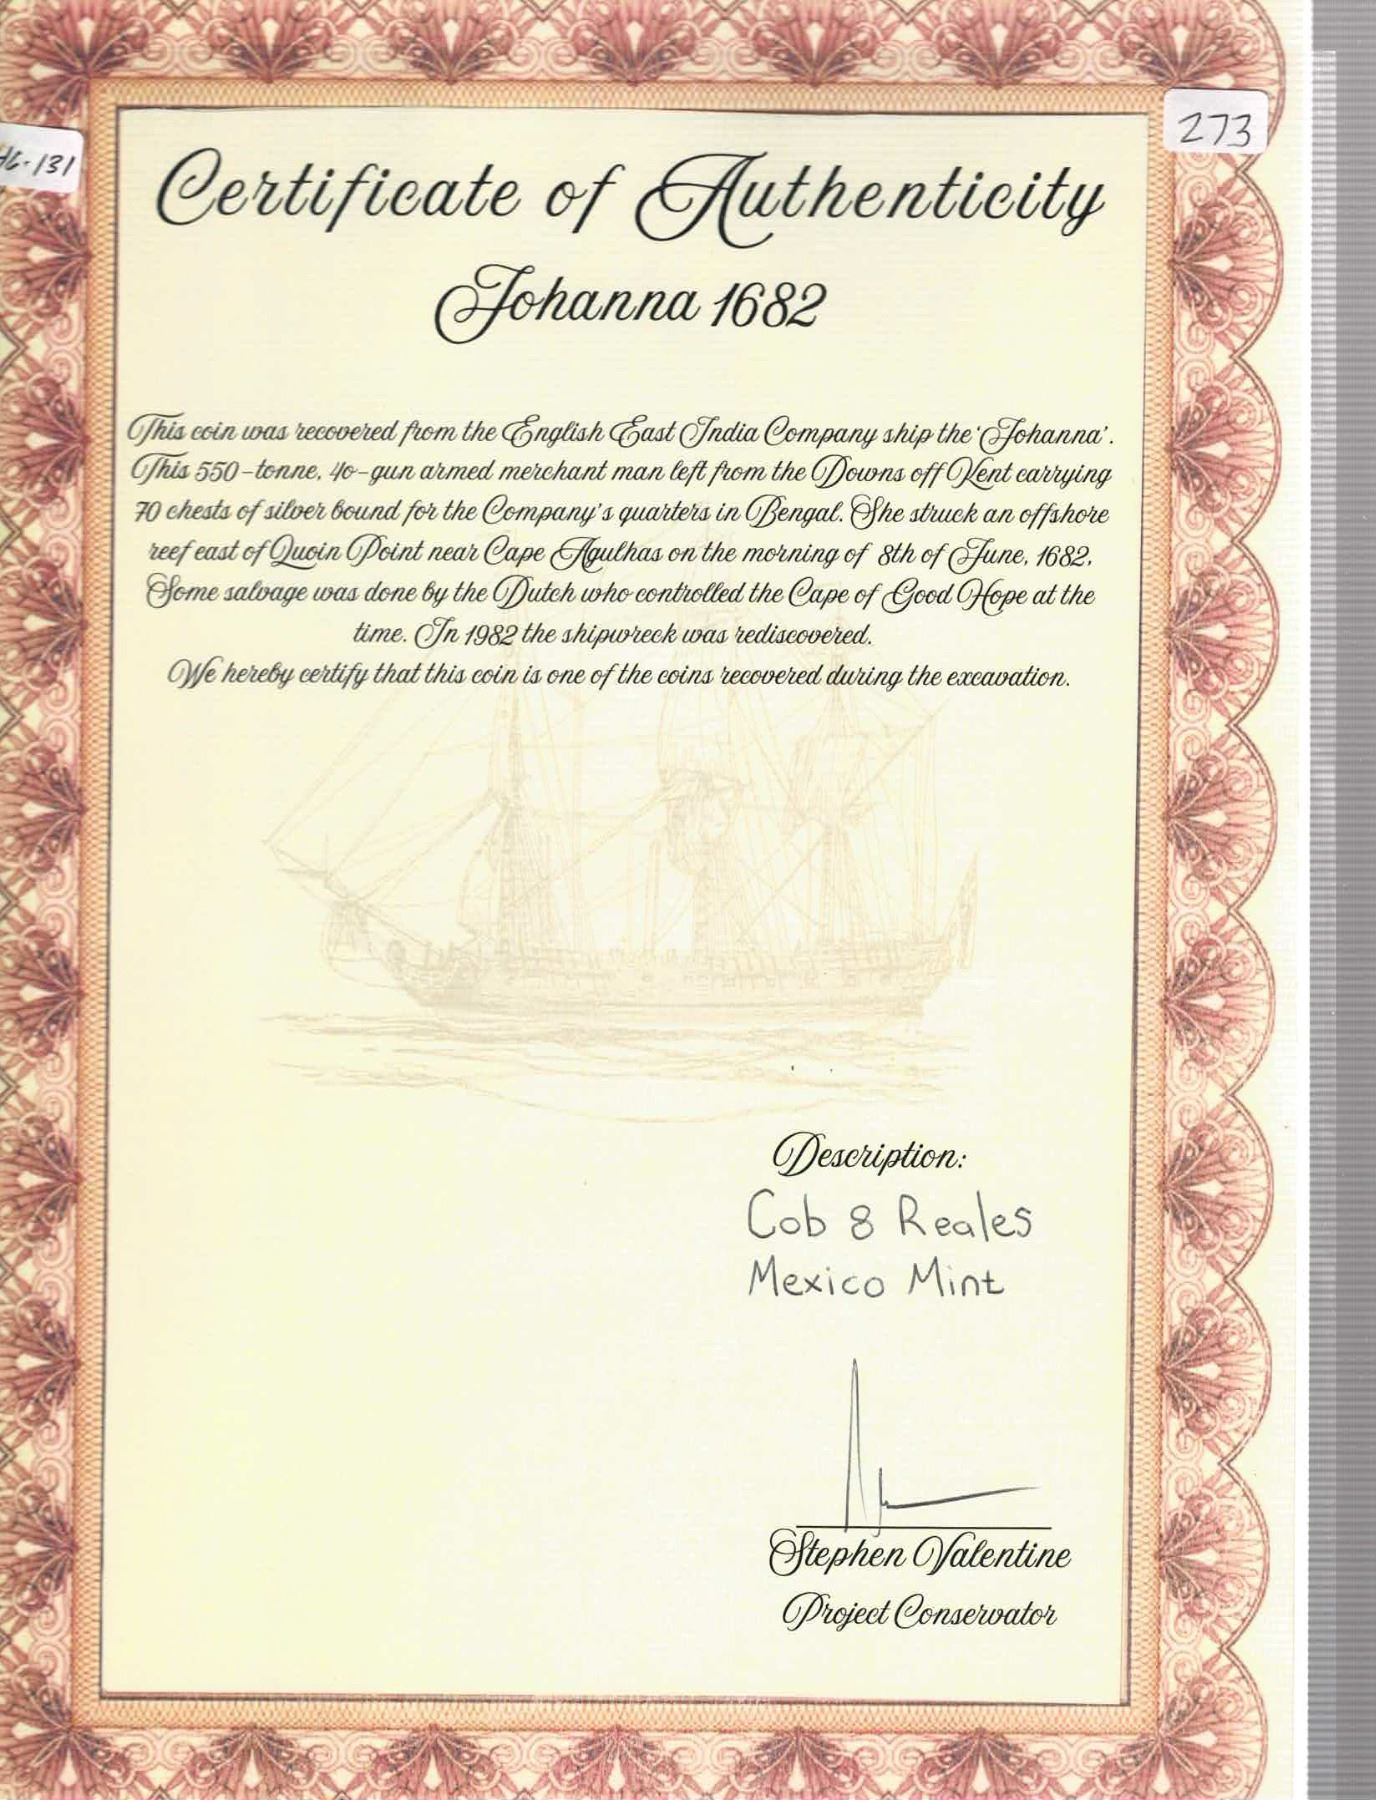 273
Certificate of Authenticity
Johanna 1682
This coin was recovered from the English East India Company ship the 'Johanna'.
This 550-tonne, 40-gun armed merchant man left from the Downs off Kent carrying
70 chests of silver bound for the Company's quarters in Bengal. She struck an offshore
reef east of Quoin Point near Cape Agulhas on the morning of 8th of June, 1682.
Some salvage was done by the Dutch who controlled the Cape of Good Hope at the
time. In 1982 the shipwreck was rediscovered.
We hereby certify that this coin is one of the coins recovered during the excavation.
Description:
Cob 8 Reales
Mexico Mint
Stephen Valentine
Project Conservator